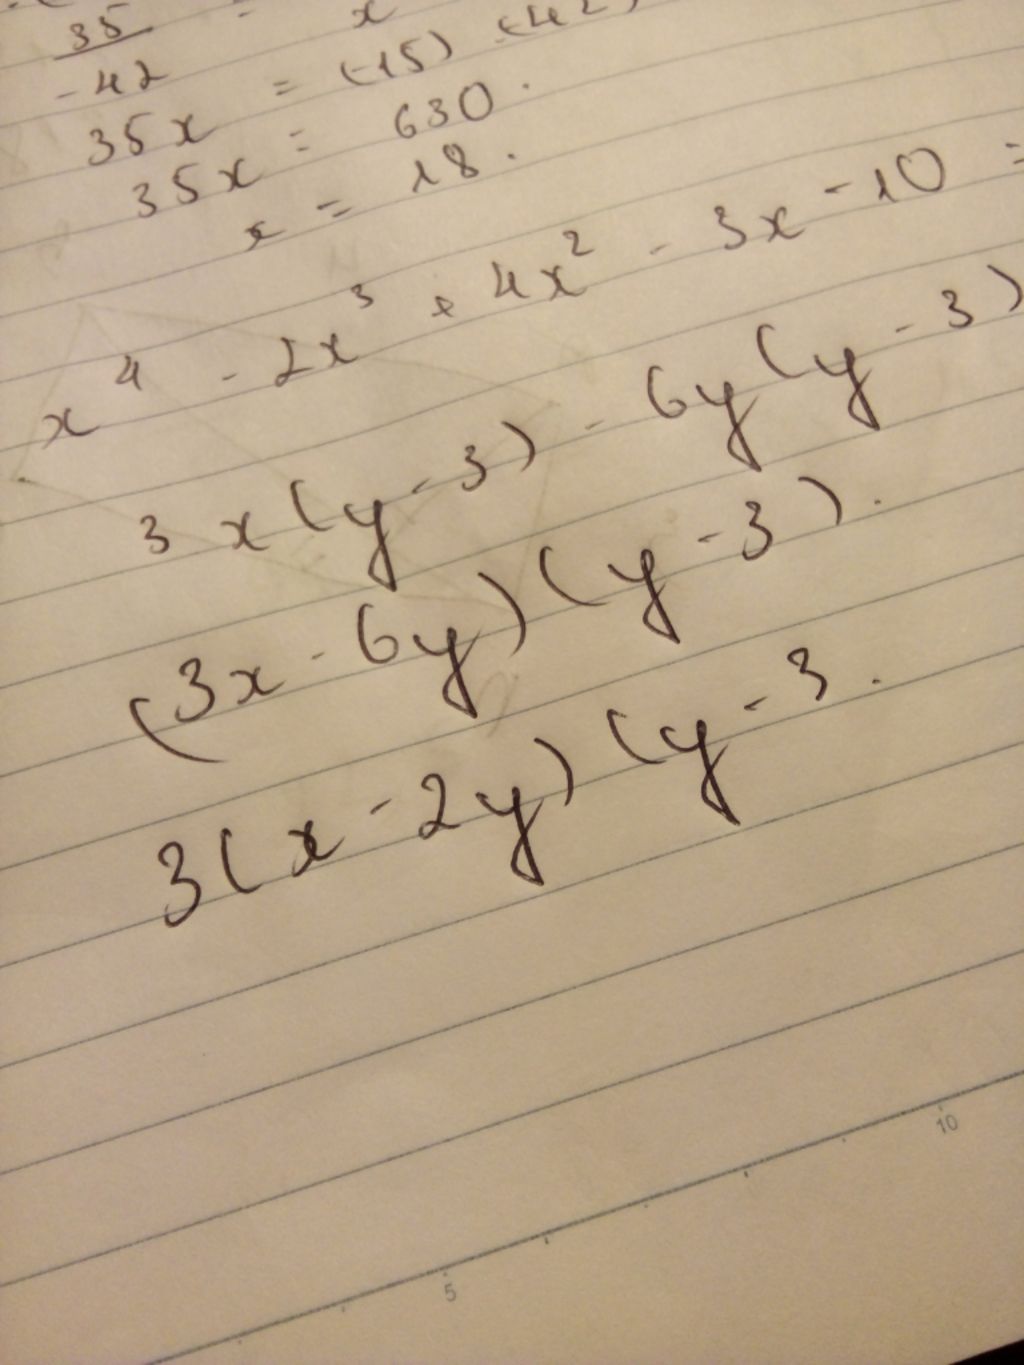 35 = x
-42
35x = (-15) (-42)
35x = 630.
x = 18.
x⁴ - 2x³ + 4x² - 3x - 10 =
3x(y - 3) - 6y(y - 3)
(3x - 6y)(y - 3).
3(x - 2y)(y - 3.
5 10